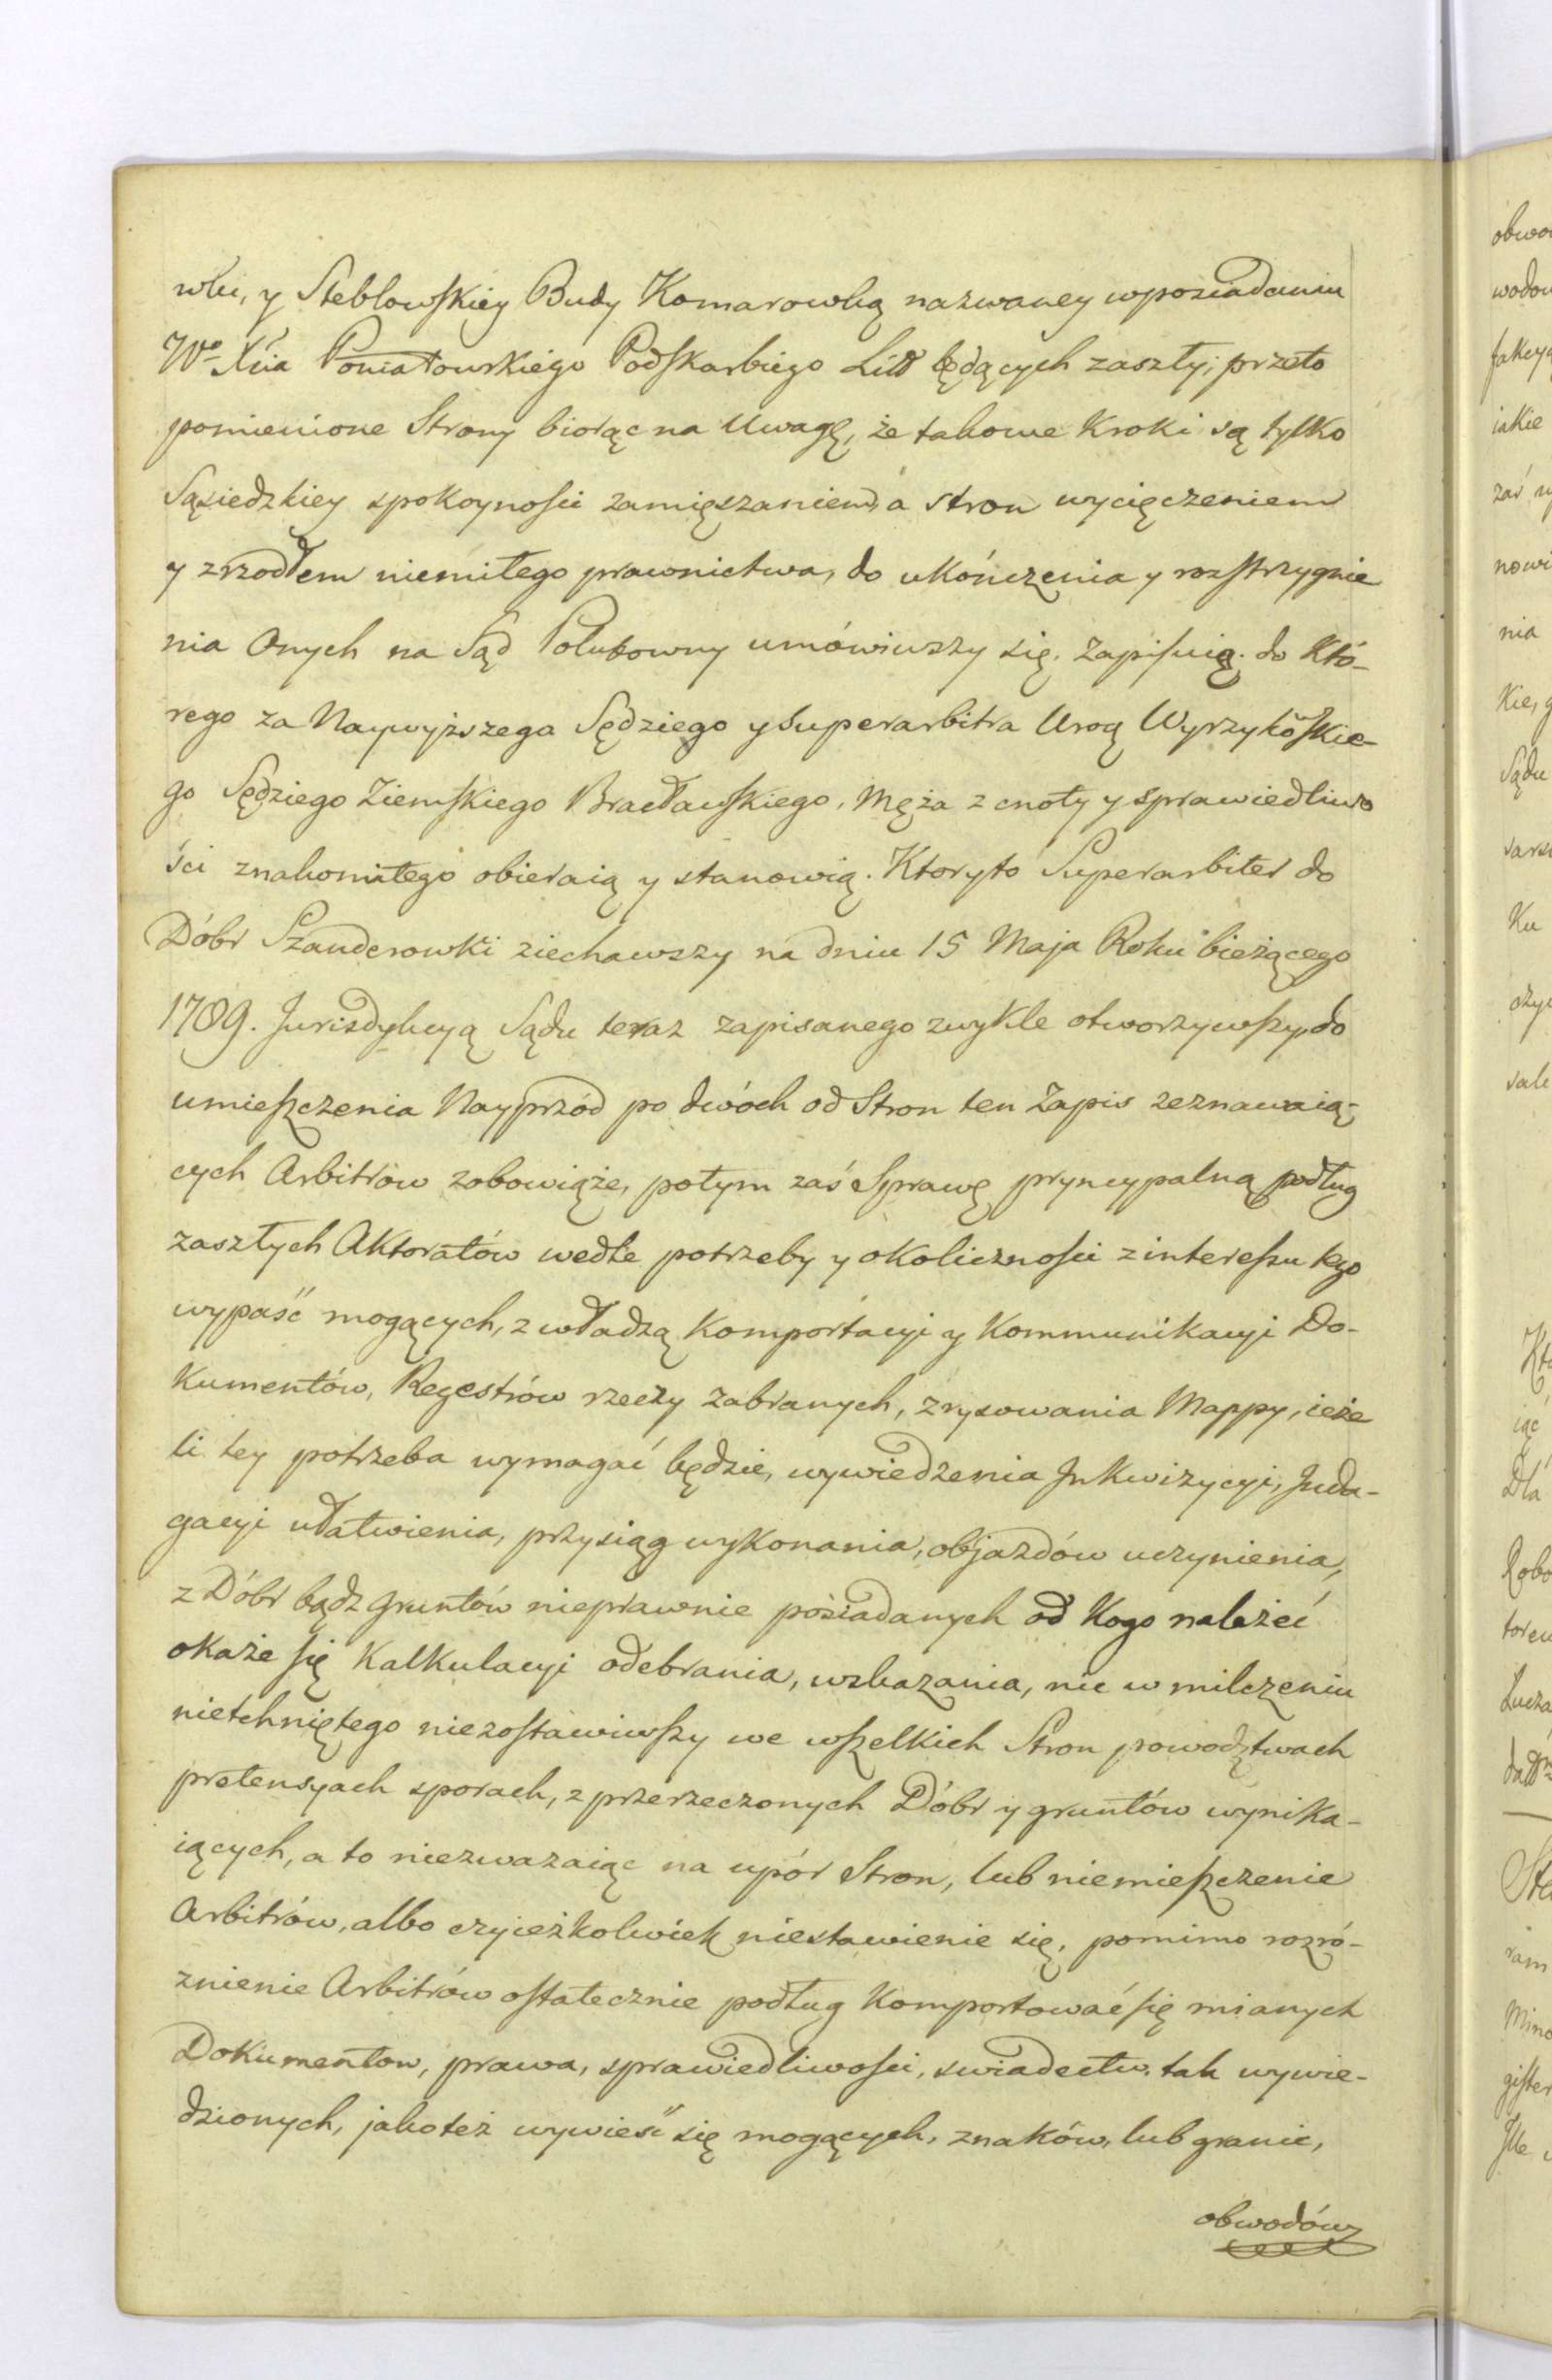 wki, y Steblowskiey Budy Komarowką nazwaney wposiadaniu
Wo Xcia Poniatowskiego Podskarbiego Litt będących zaszły; przeto
pomienione Strony biorąc na Uwagę, że takowe Kroki są tylko
Sąsiedzkiey spokoynosci zamięszaniem, a stron wycięczeniem
y zrzodłem niemiłego prawnictwa, do ukończenia y rozstrzygnie
nia Onych na Sąd Polubowny umówiwszy się. Zapisuią. do Któ-
rego za Naywyższego Sędziego y Superarbitra Urog Wyrzykowskie-
go Sędziego Ziemskiego Bracławskiego, Męża z cnoty y sprawiedliwo
ści znakomitego obieraią y stanowią. Ktoryto Superarbiter do
Dóbr Szanderowki ziechawszy na dniu 15 Maja Roku bieżącego
1789. Jurisdykcyą Sądu teraz zapisanego zwykle otworzywszy, do
umieszczenia Nayprzód po dwóch od Stron ten Zapis zeznawaią-
cych Arbitrów zobowiąże, potym zaś Sprawę pryncypalną podług
zaszłych Aktoratów wedle potrzeby y okolicznosci z interessu tego
wypaść mogących, z władzą Komportacyi y Kommunikacyi Do-
kumentów, Regestrów rzeczy zabranych, zrysowania Mappy, ieże
li tey potrzeba wymagać będzie, wywiedzenia Inkwizycyi, Inda-
gacyi ułatwienia, przysiąg wykonania, objazdów uczynienia,
z Dóbr bądz gruntów nieprawnie posiadanych od kogo należeć
okaże się Kalkulacyi odebrania, wskazania, nic w milczeniu
nietchniętego niezostawiwszy we wszelkich Stron powodztwach
pretensyach sporach, z przerzeczonych Dóbr y gruntów wynika-
iących, a to niezwazaiąc na upór Stron, lub niemieszczenie
Arbitrów, albo czyieżkolwiek niestawienie się, pomimo rozró-
znienie Arbitrów ostatecznie podług Komportować się mianych
Dokumentow, prawa, sprawiedliwosci, swiadectw, tak wywie-
dzionych, jakoteż wywieść się mogących, znaków, lub granic,
obwodów